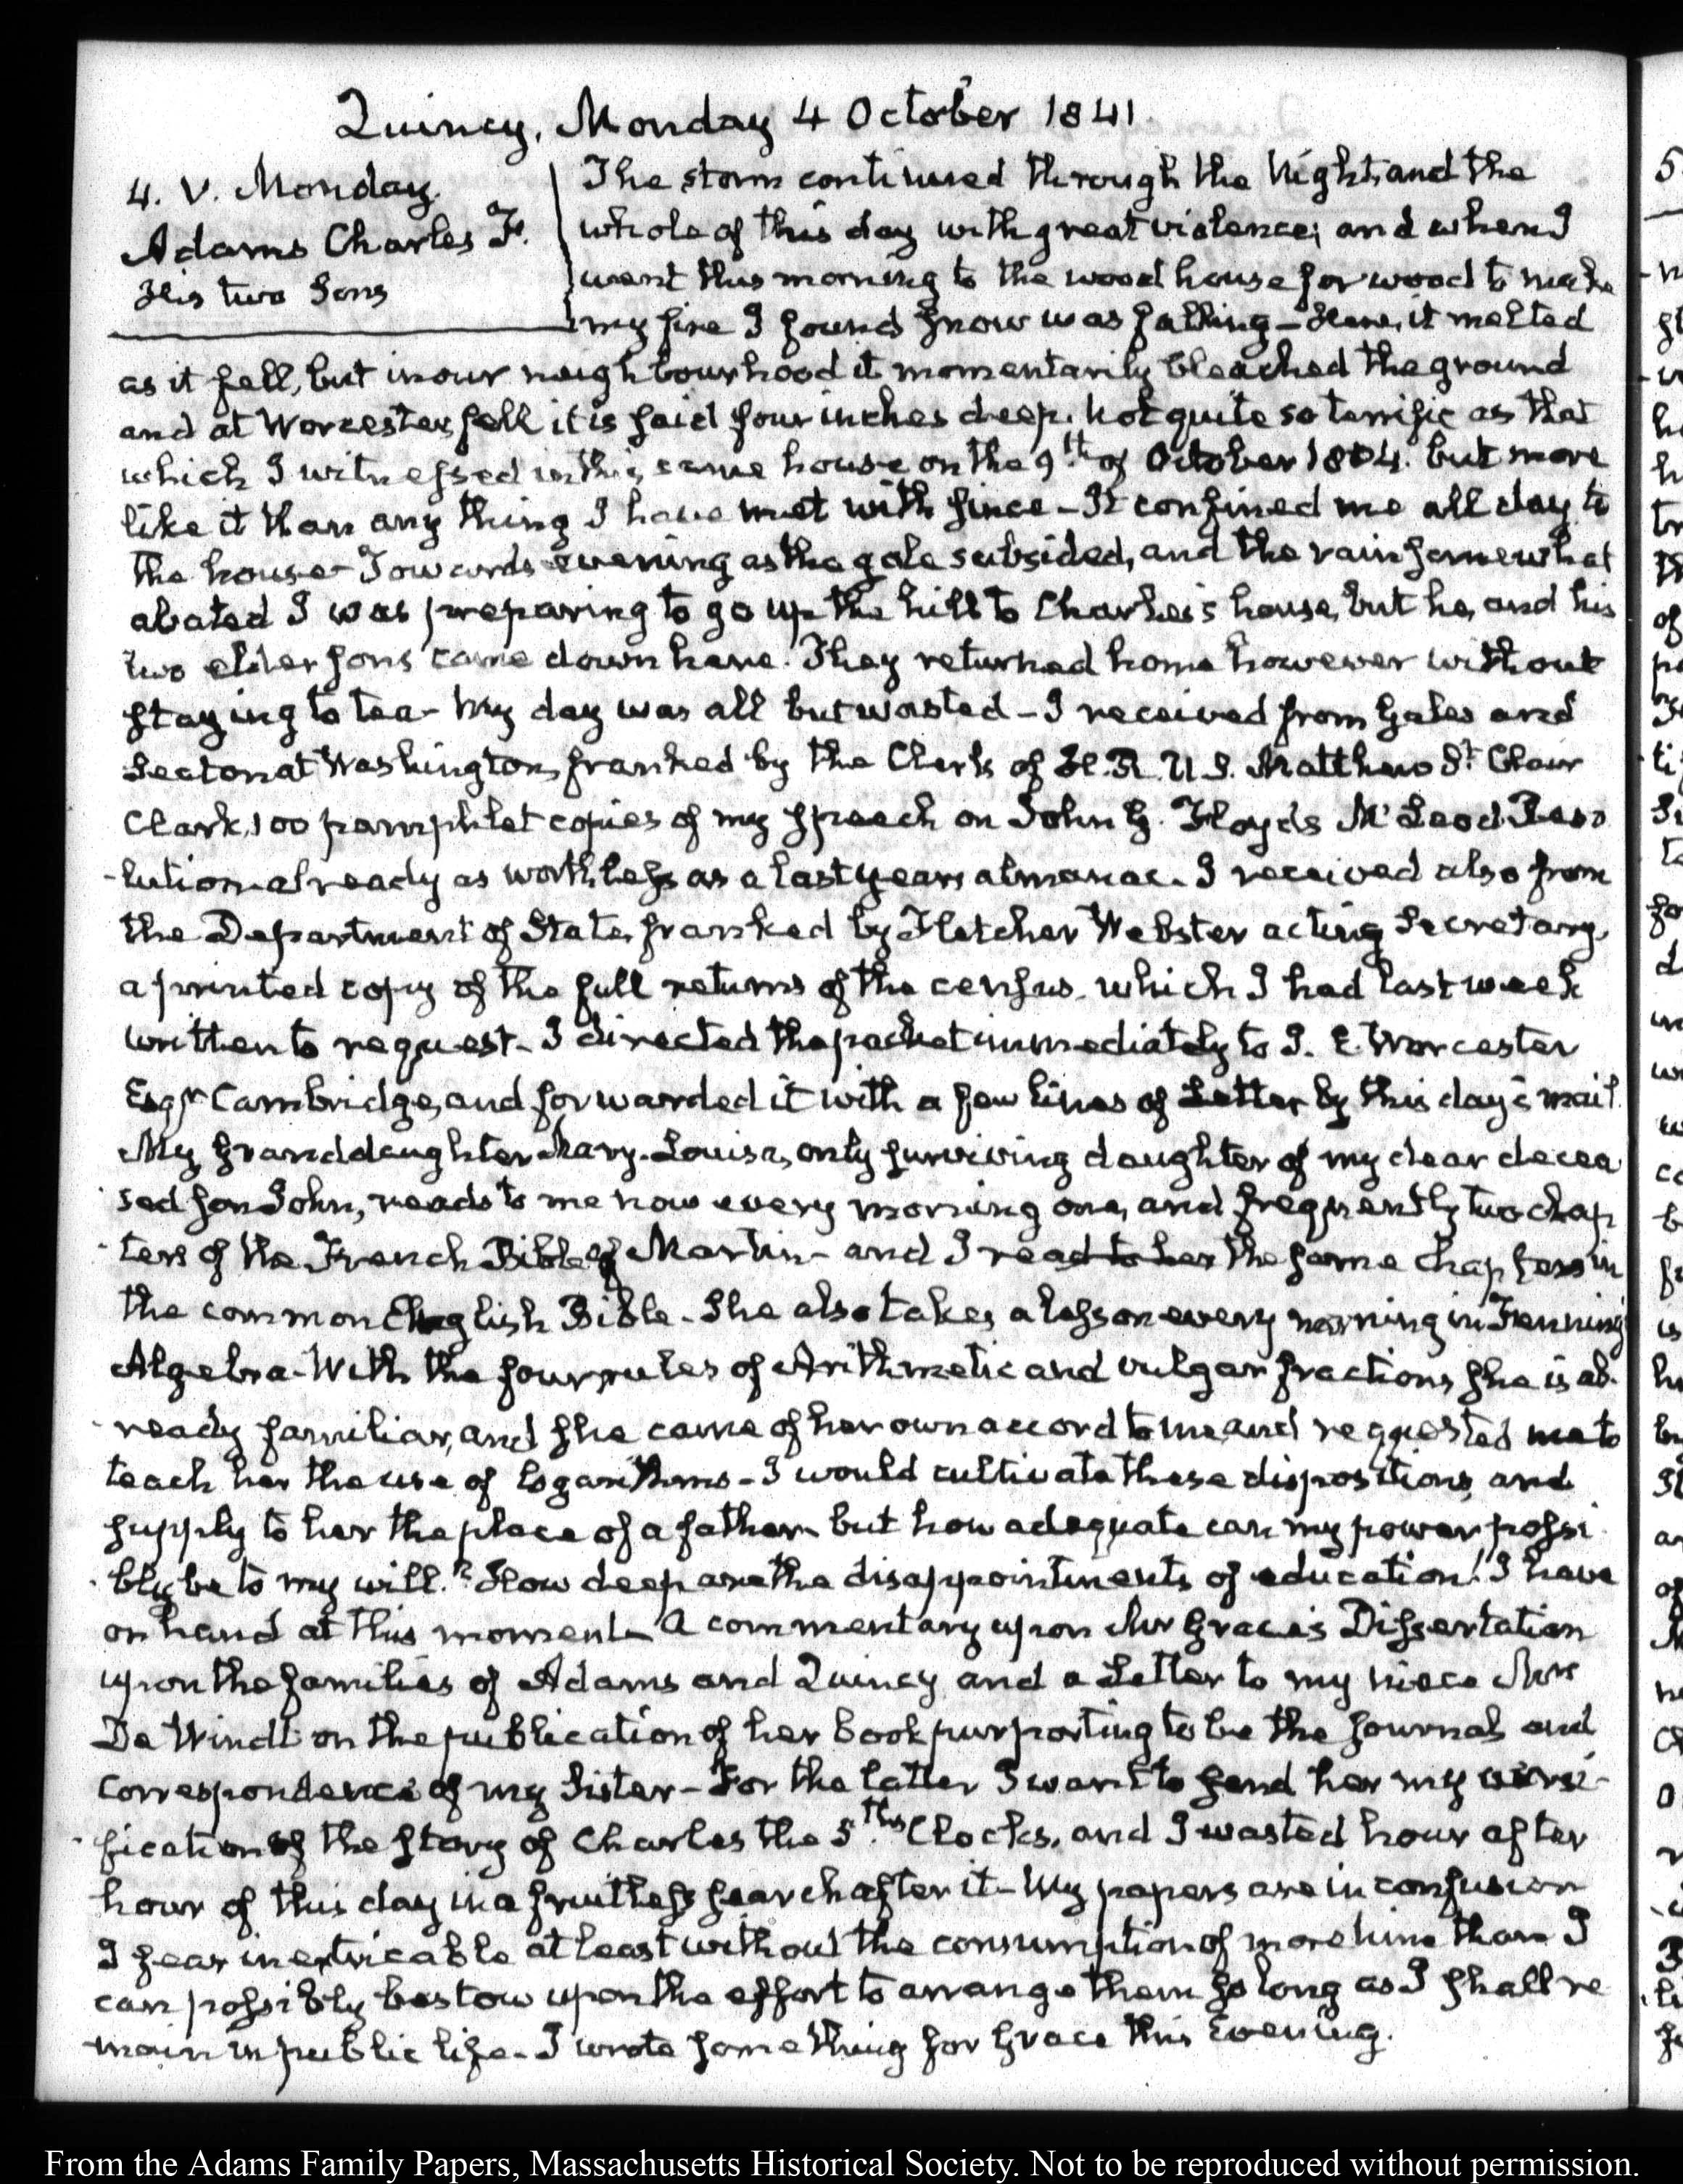 Quincy, Monday 4 October 1841.
4. V. Monday.
Adams Charles F.
His two Sons
The storm continued through the Night, and the
whole of this day with great violence; and when I
went this morning to the wood house for wood to make
my fire I found snow was falling - Here, it melted
as it fell, but in our neighbourhood it momentarily bleached the ground
and at Worcester, fell it is said four inches deep. Not quite so terrific as that
which I witnessed in this same house on the 9.th of October 1804. but more
like it than any thing I have met with since - It confined me all day to
the house - Towards evening as the gale subsided, and the rain somewhat
abated I was preparing to go up the hill to Charles's house, but he, and his
two elder sons came down here. They returned home however without
staying to tea - My day was all but wasted - I received from Gales and
Seaton at Washington, franked by the Clerk of H. R. U. S. Matthew St Clair
Clark, 100 pamphlet copies of my speech on John G. Floyd's McLeod Reso
-lution already as worthless as a last years almanac. I received also from
the Department of State, franked by Fletcher Webster acting Secretary,
a printed copy of the full returns of the census, which I had last week
written to request - I directed the packet immediately to J. E. Worcester
Esqr Cambridge, and forwarded it with a few lines of Letter by this day's mail.
My Granddaughter Mary-Louisa, only surviving daughter of my dear decea
sed son John, reads to me now every morning one, and frequently two chap
-ters of the French Bible of Martin - and I read to her the same Chapters in
the common English Bible - She also takes a lesson every morning in Fenning's
Algebra - With the four rules of Arithmetic and vulgar fractions she is al-
-ready familiar, and she came of her own accord to me and requested me to
teach her the use of Logarithms - I would cultivate these dispositions, and
supply to her the place of a father - but how adequate can my power possi
-bly be to my will? How deep are the disappointments of education! I have
on hand at this moment - A commentary upon Mr Grace's Dissertation
upon the families of Adams and Quincy and a Letter to my niece Mrs
De Windt on the publication of her book purporting to be the Journal and
Correspondence of my Sister - For the latter I want to send her my versi-
-fication of the story of Charles the 5.ths Clocks, and I wasted hour after
hour of this day in a fruitless search after it - My papers are in confusion
I fear inextricable at least without the consumption of more time than I
can possibly bestow upon the effort to arrange them so long as I shall re
-main in public life - I wrote something for Grace this Evening.
From the Adams Family Papers, Massachusetts Historical Society. Not to be reproduced without permission.